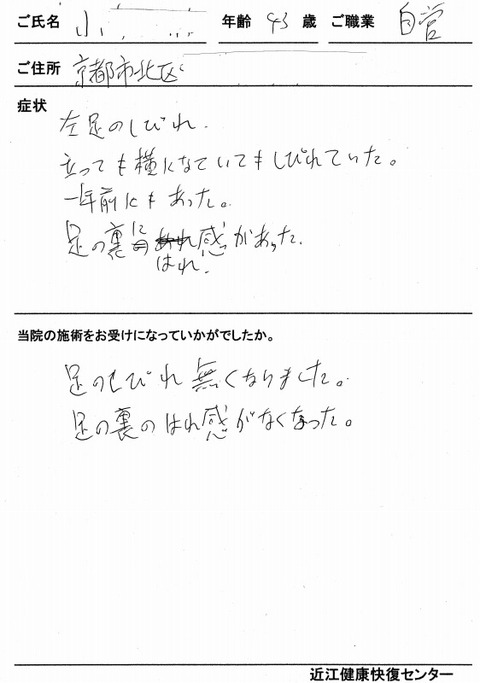 ご氏名 小 年齢 43 歳 ご職業 自営
ご住所 京都市北区
症状
左足のしびれ.
立っても横になていてもしびれていた。
一年前にもあった。
足の裏にはれ感があった.
当院の施術をお受けになっていかがでしたか。
足のしびれ無くなりました。
足の裏のはれ感がなくなった。
近江健康快復センター